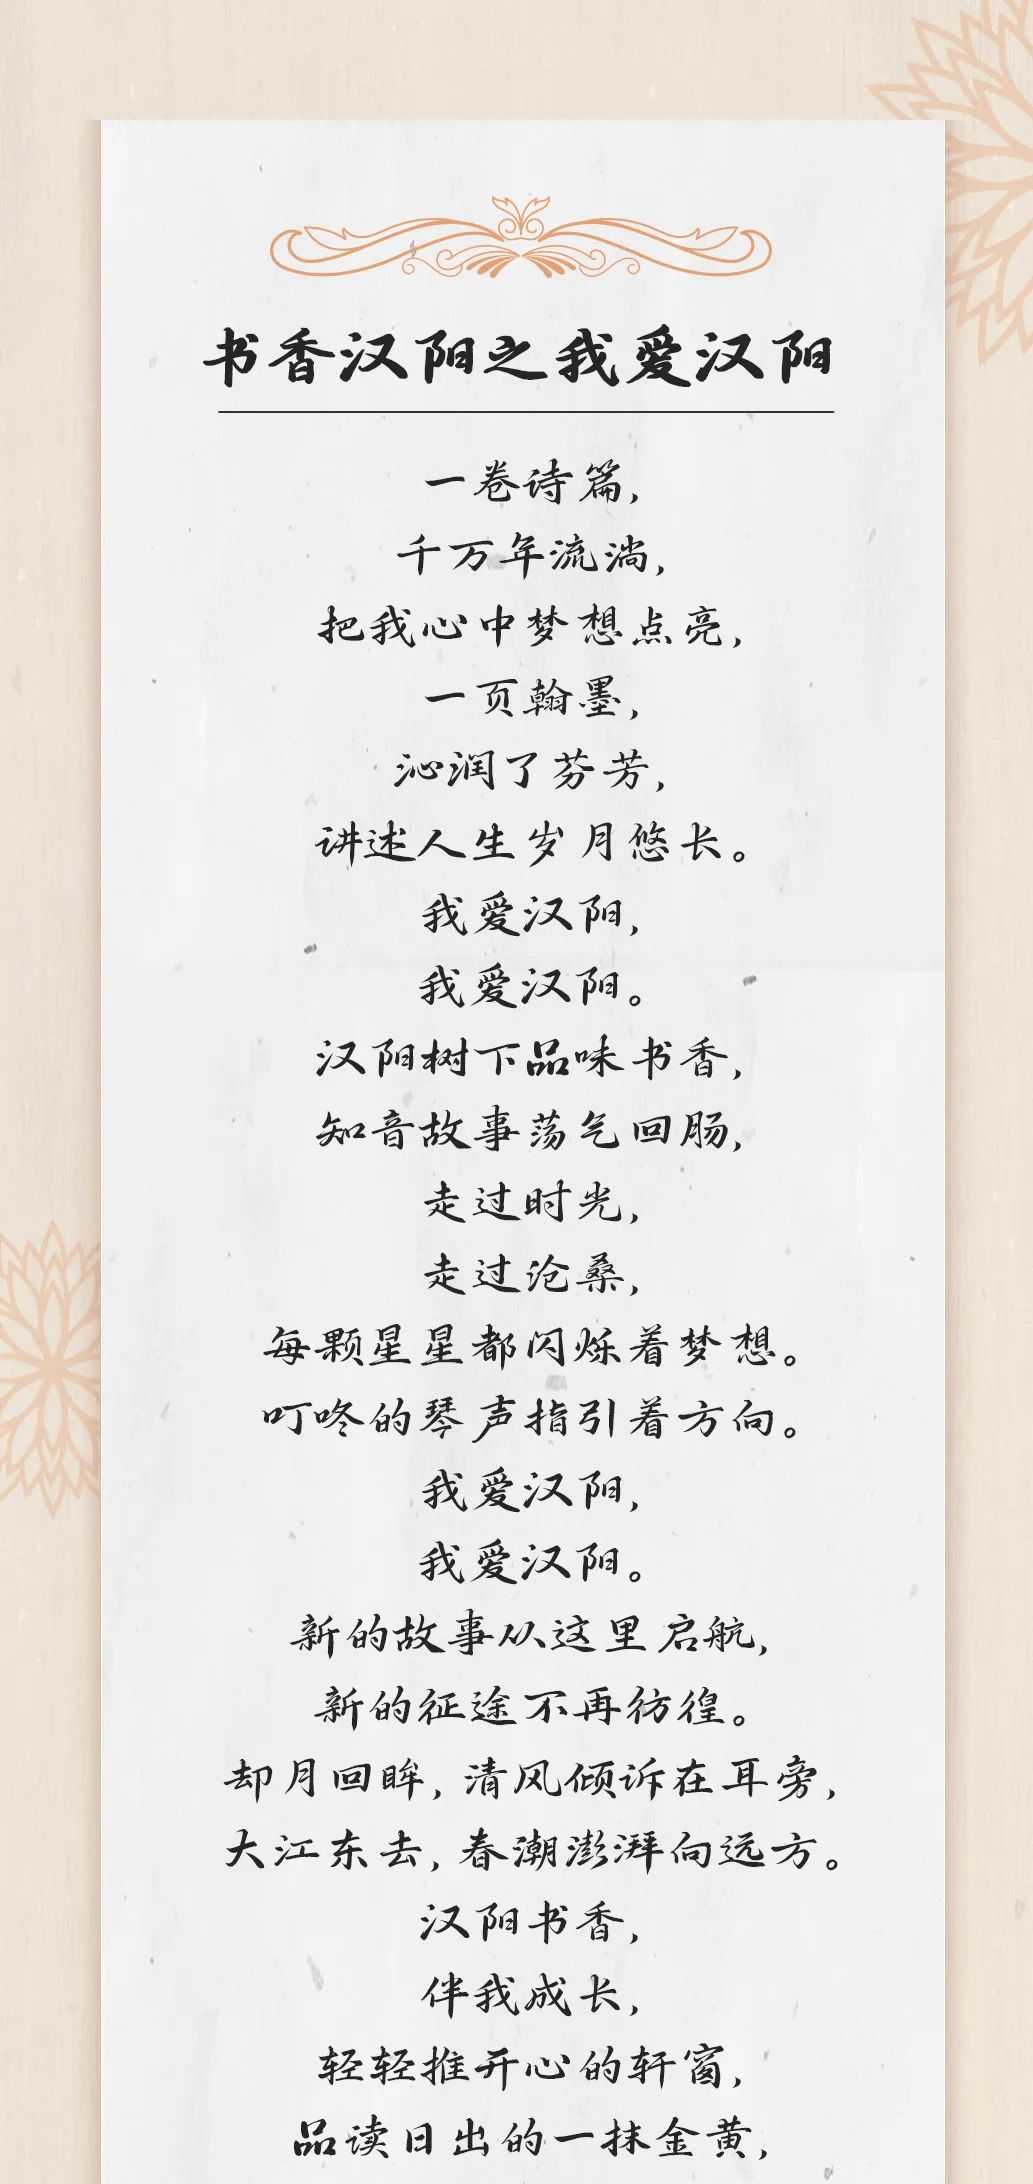 书香汉阳之我爱汉阳
一卷诗篇,
千万年流淌,
把我心中梦想点亮,
一页翰墨,
沁润了芬芳,
讲述人生岁月悠长。
我爱汉阳,
我爱汉阳。
汉阳树下品味书香,
知音故事荡气回肠,
走过时光,
走过沧桑,
每颗星星都闪烁着梦想。
叮咚的琴声指引着方向。
我爱汉阳,
我爱汉阳。
新的故事从这里启航,
新的征途不再彷徨。
却月回眸,清风倾诉在耳旁,
大江东去,春潮澎湃向远方。
汉阳书香,
伴我成长,
轻轻推开心的轩窗,
品读日出的一抹金黄,